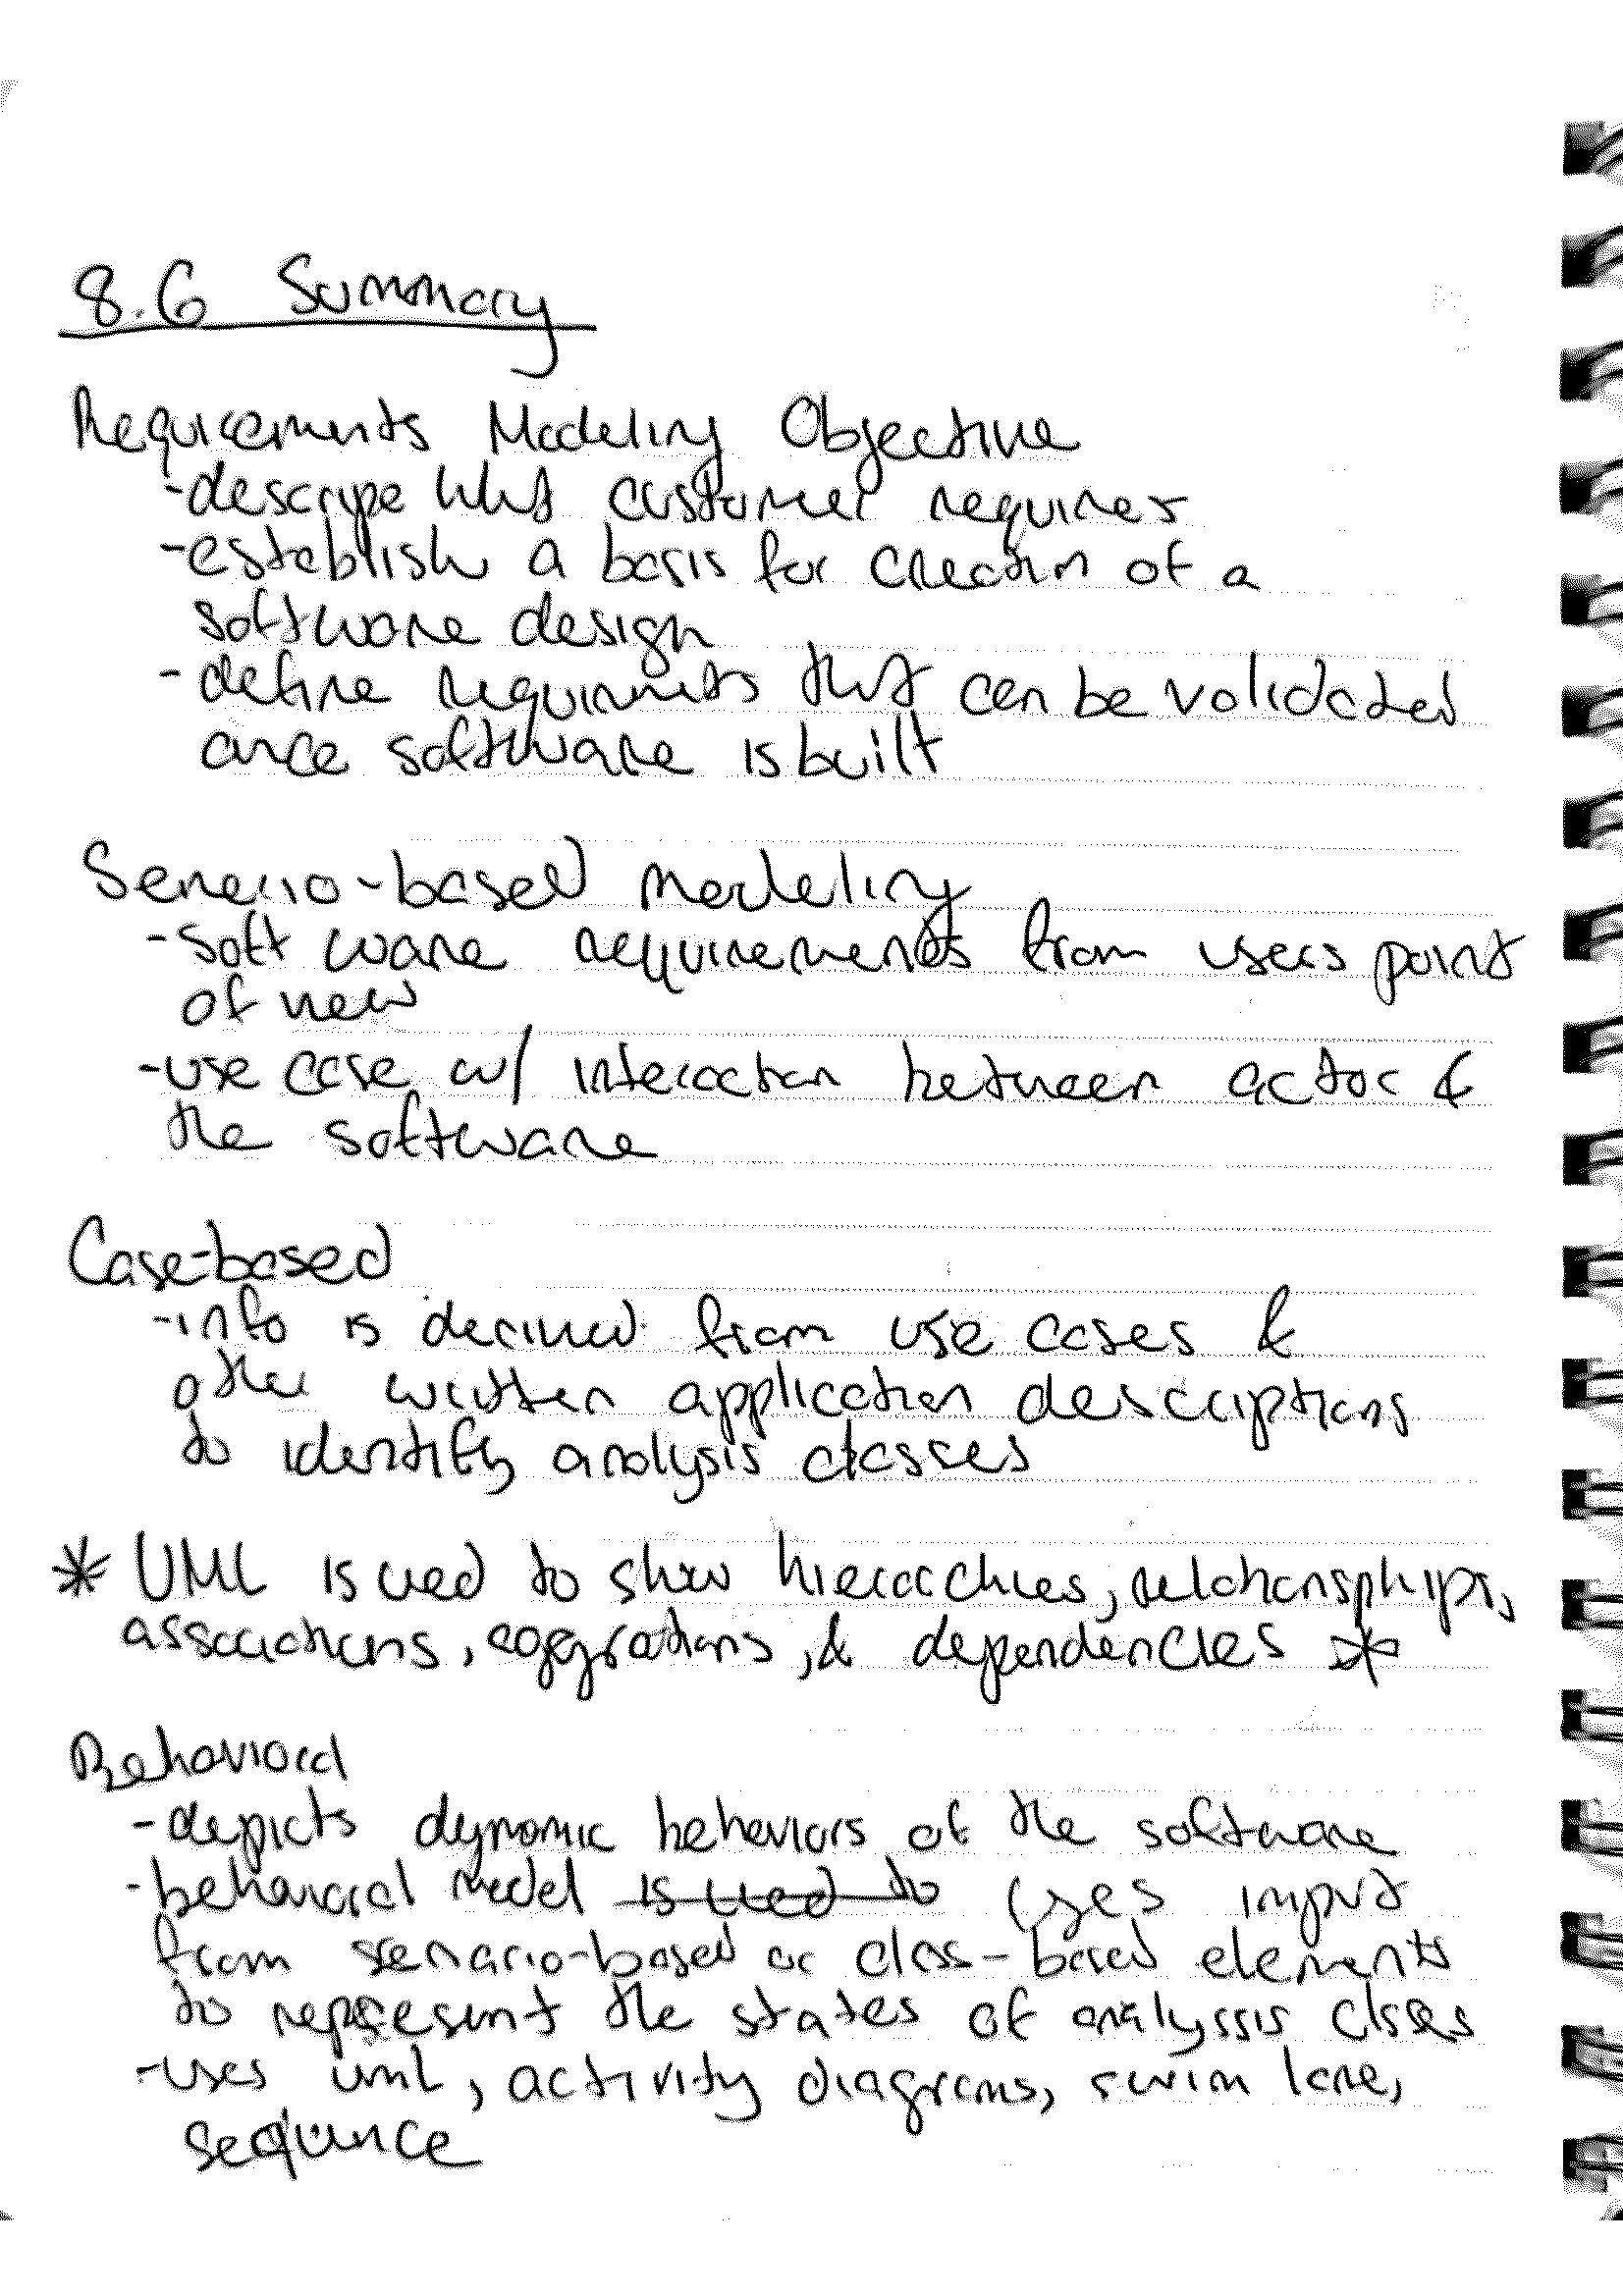 8.6 Summary
Requirements Modeling Objective
-describe what customer requires
-establish a basis for creation of a
software design
-define requirments that can be validated
once software is built
Senerio-based modeling
-software requirements from users point
of view
-use case w/ interaction between actor &
the software
Case-based
-info is derived from use cases &
other written application descriptions
to identify analysis classes
* UML is used to show hierarchies, relationsphips,
associations, agggrations, & dependencies *
Behavioral
-depicts dynamic behaviors of the software
-behavioral model is used to uses input
from scenario-based or class-based elements
to represent the states of analyssis clsses
-uses uml, activity diagrams, swim lane,
sequnce